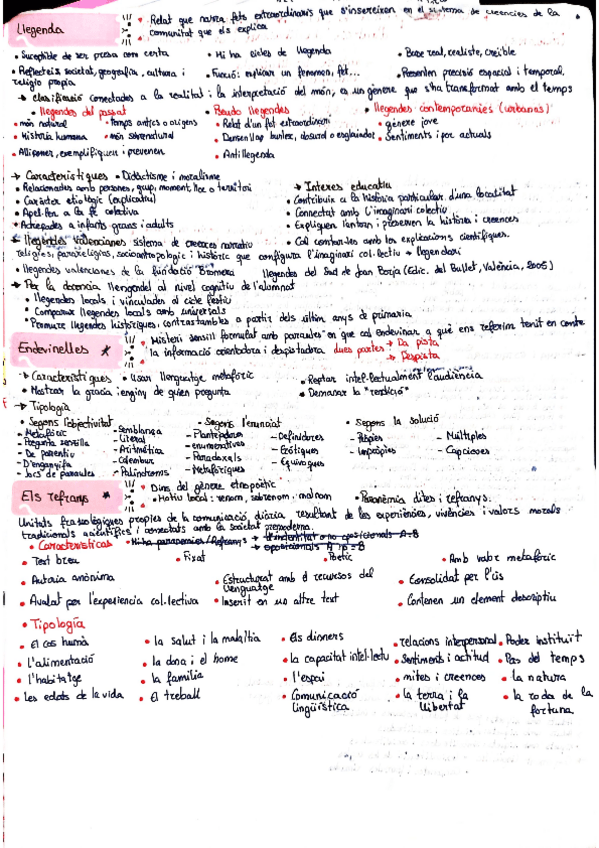 Llegenda
• Relat que narra fets extraordinaris que s'insereixen en el sistema de creencies de la
comunitat que els explica
• Suceptible de ser presa com certa • Hi ha cicles de llegenda • Base real, realiste, creïble
• Reflecteix societat, geografia, cultura i religio propia • Funció: explicar un fenomen, fet... • Presenten precisió espacial i temporal.
→ Clasificació conectades a la realitat i la interpretació del món, es un gènere que s'ha transformat amb el temps
• llegendes del passat • Pseudo llegendes • llegendes contemporanies (urbanas)
• món natural • temps antics o origens • Relat d'un fet extraordinari • gènere jove
• Història humana • món sobrenatural • Desenllaç burlesc, absurd o • Sentiments i por actuals
• Alliçonen, exemplifiquen i prevenen • Antillegenda
→ Característigues • Didactisme i moralisme → Interes educatiu
• Relacionades amb persones, grup, moment, lloc o territori • Contribuix a la història particular d'una localitat
• Caràcter etiològic (explicatiu) • Connectat amb l'imaginari colectiu
• Apel·len a la fe colectiva • Expliquen l'antan i preserven la història i creences
• Adreçades a infants, graus i adults • Cal contar-les amb les explicacions cientifiques.
• llegendes valencianes sistema de creences narratiu
religies, parareligies, socioantropologic i històric que configura l'imaginari col·lectiu → llegendari
• llegendes valencianes de la fundació Bromera llegendes del Sud de Joan Borja (Edic. del Bullet, València, 2005)
→ Per la docencia llengendel al nivel cognitiu de l'alumnat
• llegendes locals i vinculades al cicle festiu
• Comparar llegendes locals amb universals
Permure llegendes històriques, contrastambles a partir dels últim anys de primaria
Endevinelles
• Misteri senzill formulat amb paraules en que cal endevinar a què ens referim tenit en conte
la informació orientadora i despistadora dues partes → Da pista
→ Despista
→ Característigues • Usar llenguatge metafòric • Reptar intel·lectualment l'audiència
• Mostrar la gracia i enginy de quien pregunta • Demanar la "rendició"
→ Tipologia
• Segons l'objectivitat - Segons l'enunciat • Segons la solució
- Metafòric - Semblança - Plantejadores - Definidores - Pròpies - Múltiples
- Pregunta senzilla - Literal - enumeratives - Eròtiques - Impròpies - Capcioses
- De parentiu - Aritmètica - Paradoxals - Equivoques
- D'enganyifa - Calembur - Metafòriques
- Jocs de paraules - Palíndroms
Els refranys
• Dins del gènere etnopoètic
• Motiu local: renom, sobrenom, malnom • Paremia dites i refranys.
Unitats fraseològiques propies de la comunicació, diària resultant de les experiències, vivències i valors morals
tradicionals acientífics i conectats amb la societat premoderna.
• Caracteristicas • Hi ha paremies/Refranys → d'indentitat o no oposicionals A=B
→ oposicionals A no = B
• Text breu • Fixat • Poètic • Amb valor metafòric
• Autoria anònima • Estructurat amb el recursos del llenguatge • Consolidat per l'ús
• Avalat per l'experiencia col·lectiva • Inserit en un altre text • Contenen un element descriptiu
• Tipología
• El cos humà • la salut i la malaltia • Els dioners • relacions interpersonal • Poder instituït
• L'alimentació • la dona i el home • la capacitat intel·lectu • Sentiments i actitud • Pas del temps
• l'habitatge • la família • l'espai • mites i creences • la natura
• les edats de la vida • El treball • Comunicació lingüística • la terra i la llibertat • la roda de la fortuna